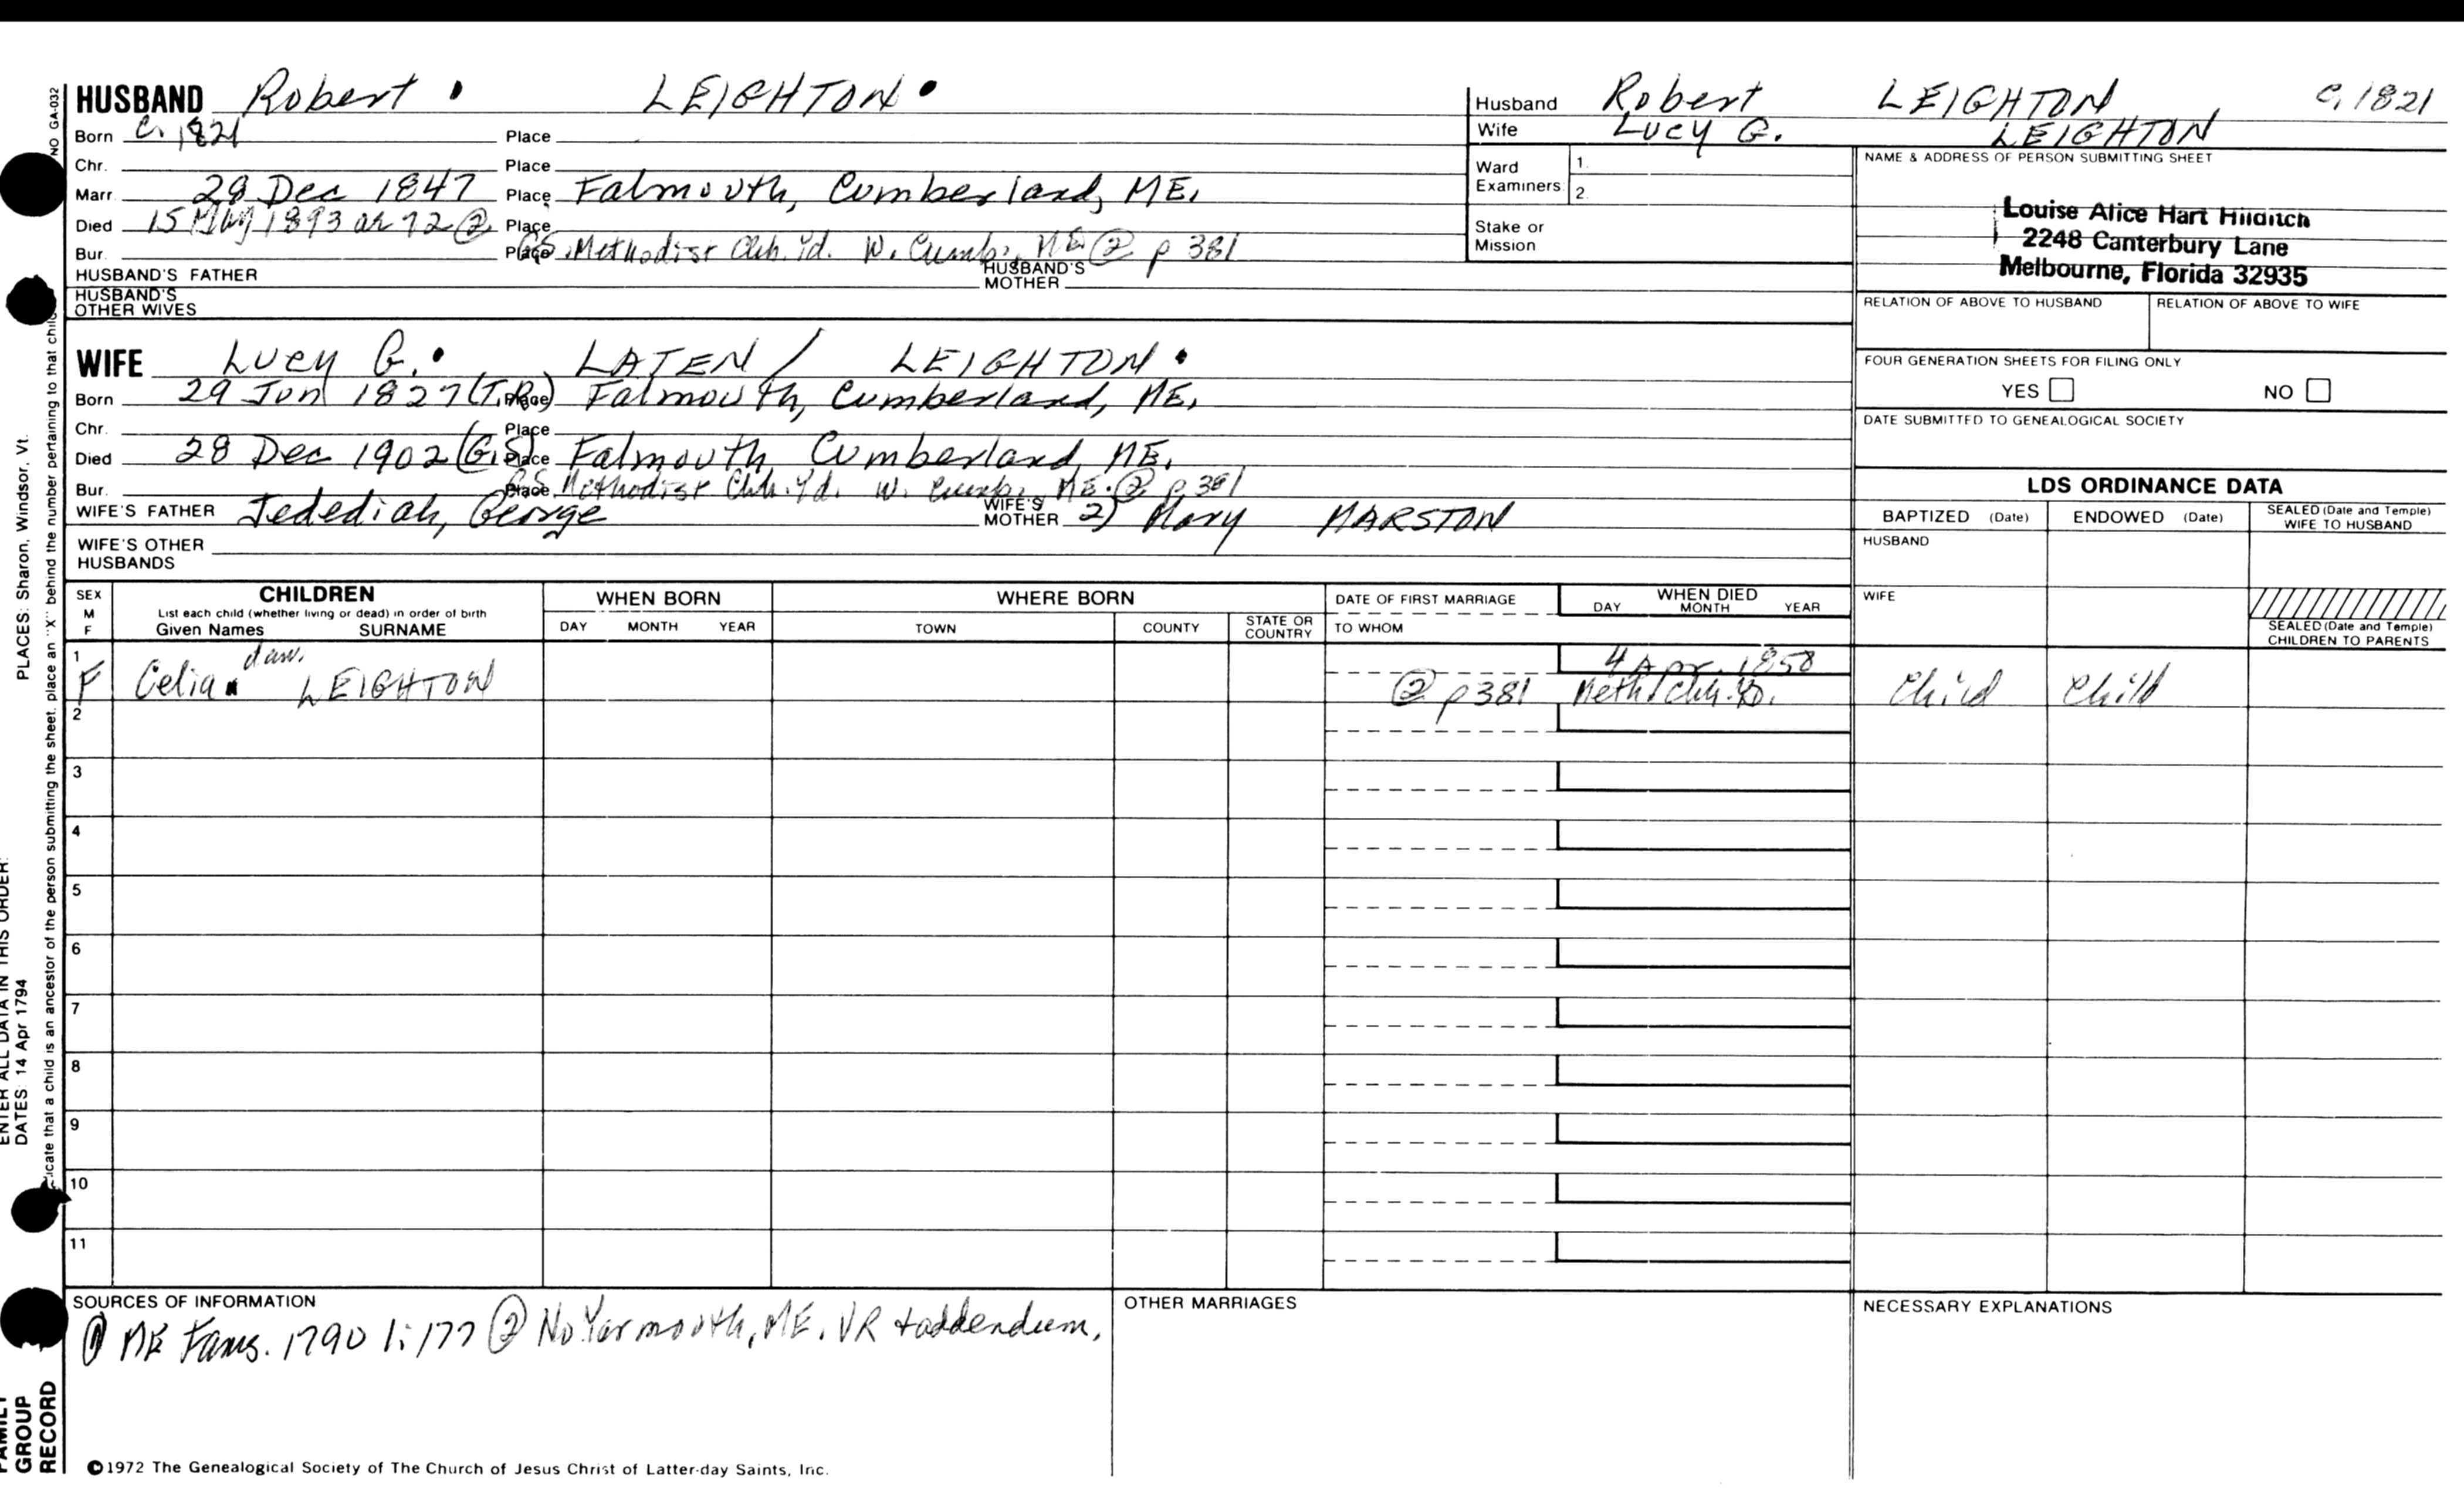 HUSBAND Robert . LEIGHTON .
Born c. 1821 Place
Chr. Place
Marr. 28 Dec 1847 Place Falmouth, Cumberland, ME.
Died 15 May 1893 ae 72 ② Place
Bur. Place GS. Methodist Chh. Yd. W. Cumb., ME ② p 381
HUSBAND'S FATHER HUSBAND'S MOTHER
HUSBAND'S OTHER WIVES
WIFE Lucy G. . LATEN / LEIGHTON .
Born 29 Jun 1827 (T.R.) Place Falmouth, Cumberland, ME.
Chr. Place
Died 28 Dec 1902 (G.S.) Place Falmouth Cumberland, ME.
Bur. Place GS Methodist Chh. Yd. W. Cumb., ME. ② p 381
WIFE'S FATHER Jedediah, George WIFE'S MOTHER 2) Mary MARSTON
WIFE'S OTHER HUSBANDS
Husband Robert LEIGHTON c. 1821
Wife Lucy G. LEIGHTON
Ward Examiners: 1.
2.
Stake or Mission
NAME & ADDRESS OF PERSON SUBMITTING SHEET
Louise Alice Hart Hilditch
2248 Canterbury Lane
Melbourne, Florida 32935
RELATION OF ABOVE TO HUSBAND RELATION OF ABOVE TO WIFE
FOUR GENERATION SHEETS FOR FILING ONLY
YES NO
DATE SUBMITTED TO GENEALOGICAL SOCIETY
LDS ORDINANCE DATA
BAPTIZED (Date) ENDOWED (Date) SEALED (Date and Temple) WIFE TO HUSBAND
HUSBAND
WIFE
SEALED (Date and Temple) CHILDREN TO PARENTS
SEX M F
CHILDREN
List each child (whether living or dead) in order of birth
Given Names SURNAME
WHEN BORN
DAY MONTH YEAR
WHERE BORN
TOWN COUNTY STATE OR COUNTRY
DATE OF FIRST MARRIAGE
TO WHOM
WHEN DIED
DAY MONTH YEAR
1 daw. 4 Apr. 1850
F Celia LEIGHTON ② p 381 Meth. Chh. Yd. Child Child
2
3
4
5
6
7
8
9
10
11
SOURCES OF INFORMATION
① ME Fams. 1790 1:177 ② No. Yarmouth, ME. VR + addendum.
OTHER MARRIAGES
NECESSARY EXPLANATIONS
©1972 The Genealogical Society of The Church of Jesus Christ of Latter-day Saints, Inc.
NO GA-032
icate that a child is an ancestor of the person submitting the sheet, place an "X" behind the number pertaining to that child
PLACES: Sharon, Windsor, Vt.
ENTER ALL DATA IN THIS ORDER:
DATES: 14 Apr 1794
FAMILY
GROUP
RECORD